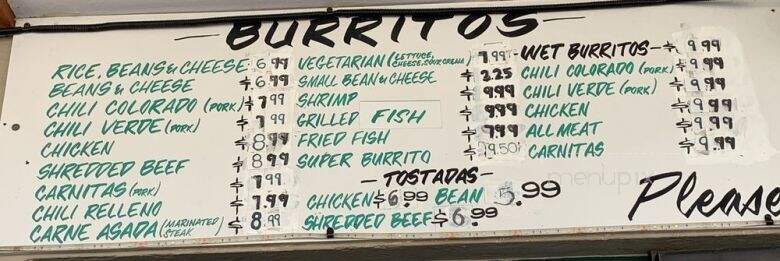 BURRITOS
RICE, BEANS & CHEESE 6.99
BEANS & CHEESE 6.99
CHILI COLORADO (PORK) 7.99
CHILI VERDE (PORK) 7.99
CHICKEN 8.99
SHREDDED BEEF 8.99
CARNITAS (PORK) 7.99
CHILI RELLENO 7.99
CARNE ASADA (MARINATED STEAK 8.99
VEGETARIAN (LETTUCE, CHEESE, SOUR CREAM) 7.99
SMALL BEAN & CHEESE 2.25
SHRIMP 9.99
GRILLED FISH 9.99
FRIED FISH 7.99
SUPER BURRITO 9.50
—TOSTADAS—
CHICKEN $6.99 BEAN 5.99
SHREDDED BEEF $6.99
WET BURRITOS— 9.99
CHILI COLORADO (PORK) 9.99
CHILI VERDE (PORK) 9.99
CHICKEN 9.99
ALL MEAT 9.99
CARNITAS 9.99
menupix
Please